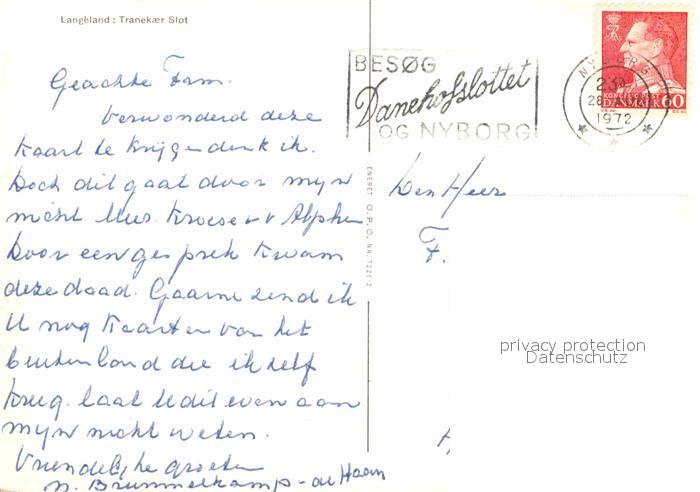 Langeland : Tranekær Slot
Geachte Fam.
Verwonderd deze
kaart te krijgen denk ik.
Doch dit gaat door mijn
nicht Mevr. Kroese v v Alphen
Door een gesprek kwam
deze daad. Gaarne zend ik
U nog kaarten van het
buitenland die ik zelf
kreeg. laat U dit even aan
mijn nicht weten.
Vriendelijke groeten
M. Brummelkamp - de Haan
ENERET O.P.O. NR.
BESØG
Danehofslottet
OG NYBORG
NYBORG
23
28
1972
KONGELIG POST
DANMARK 60
Den Heer
F.
privacy protection
Datenschutz